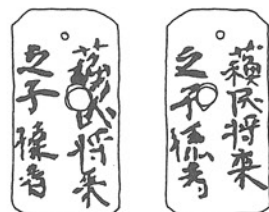 蘓民将来
之子孫者
藾民将来
之子孫者